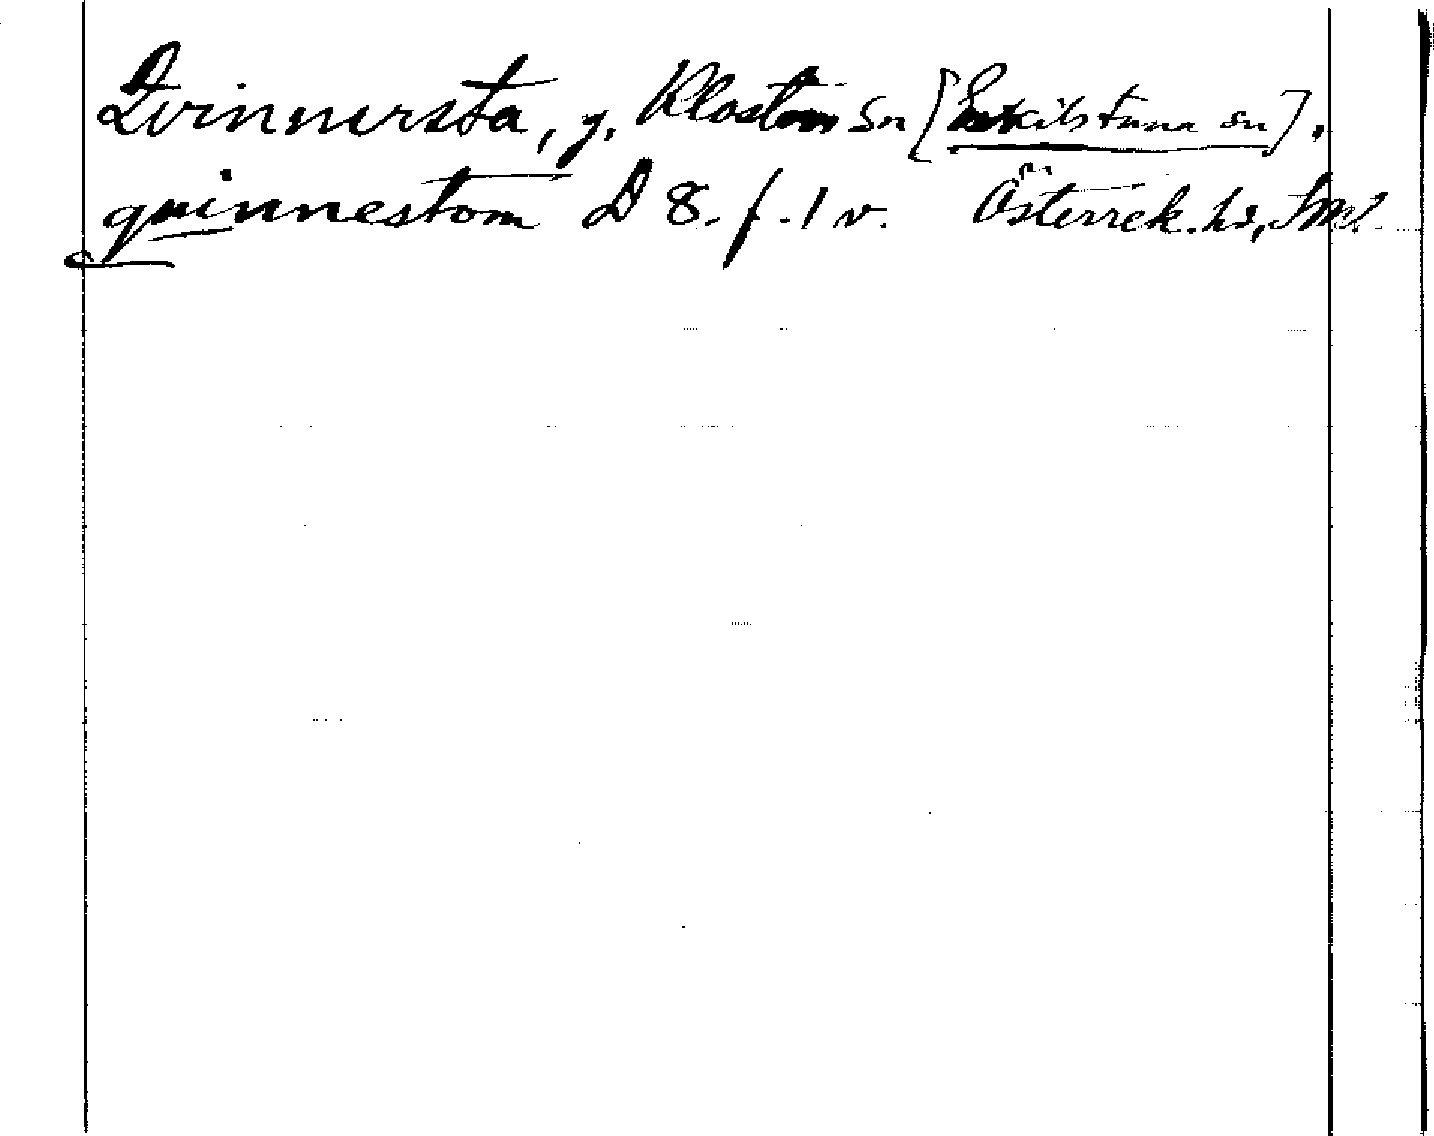 Qvinnersta, g, Klosters Sn [Eskilstuna sn],
quinnestom D 8. f. 1 v. Österrek. hs, Sml.